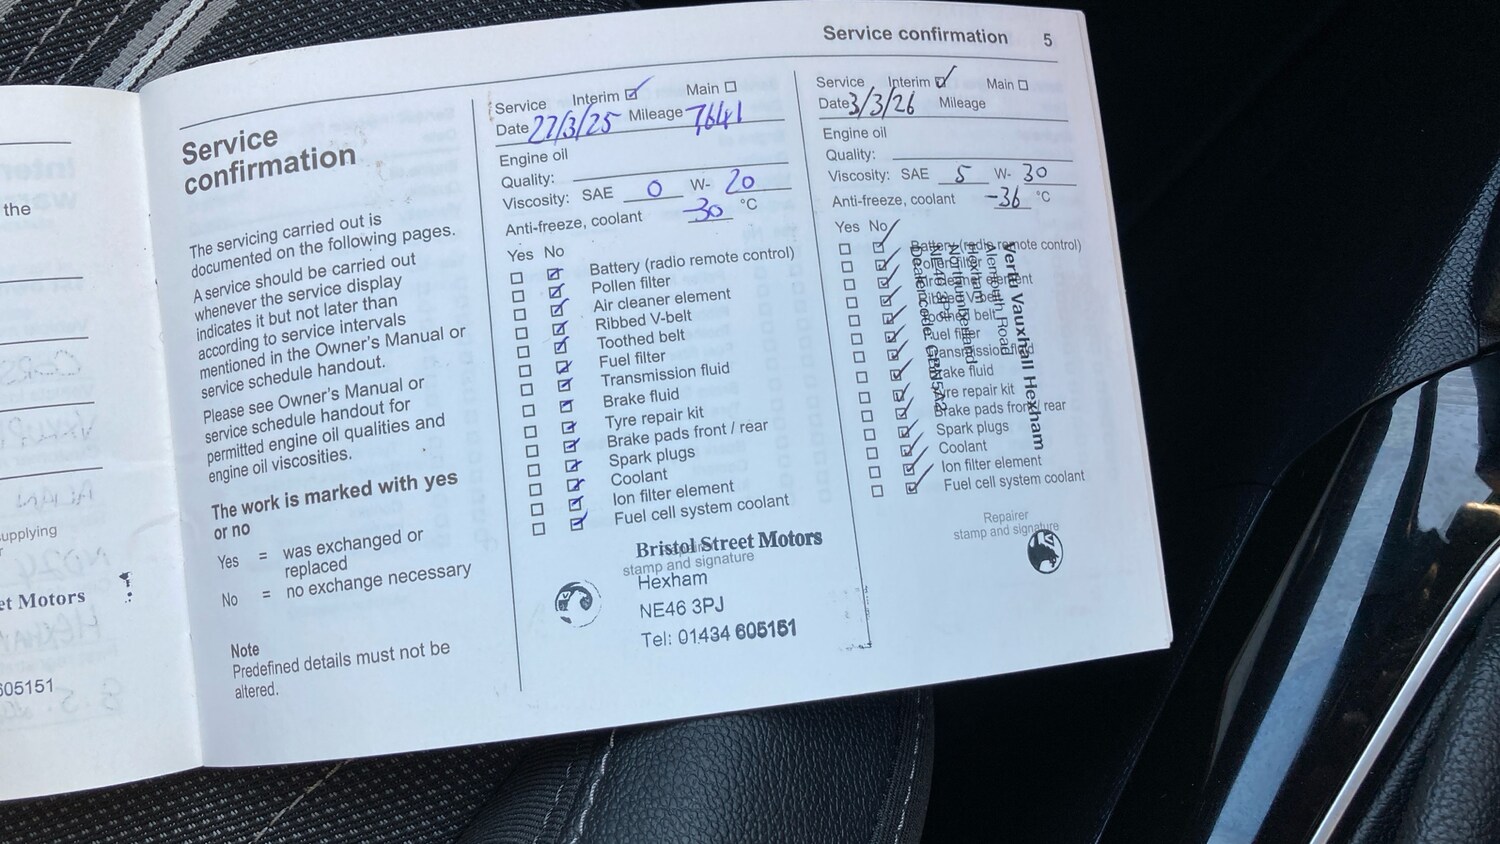 Service confirmation 5
the
supplying
et Motors
605151
Service
confirmation
The servicing carried out is
documented on the following pages.
A service should be carried out
whenever the service display
indicates it but not later than
according to service intervals
mentioned in the Owner's Manual or
service schedule handout.
Please see Owner's Manual or
service schedule handout for
permitted engine oil qualities and
engine oil viscosities.
The work is marked with yes
or no
Yes = was exchanged or
replaced
No = no exchange necessary
Note
Predefined details must not be
altered.
Service Interim Main
Date 27/3/25 Mileage 7641
Engine oil
Quality:
Viscosity: SAE 0 W- 20
Anti-freeze, coolant -30 °C
Yes No
Battery (radio remote control)
Pollen filter
Air cleaner element
Ribbed V-belt
Toothed belt
Fuel filter
Transmission fluid
Brake fluid
Tyre repair kit
Brake pads front / rear
Spark plugs
Coolant
Ion filter element
Fuel cell system coolant
Bristol Street Motors
stamp and signature
Hexham
NE46 3PJ
Tel: 01434 605151
Service Interim Main
Date 3/3/26 Mileage
Engine oil
Quality:
Viscosity: SAE 5 W- 30
Anti-freeze, coolant -36 °C
Yes No
Battery (radio remote control)
Fuel filter
Brake fluid
Tyre repair kit
Brake pads front / rear
Spark plugs
Coolant
Ion filter element
Fuel cell system coolant
Vertu Vauxhall Hexham
Road
Hexham
Northumberland
Repairer
stamp and signature